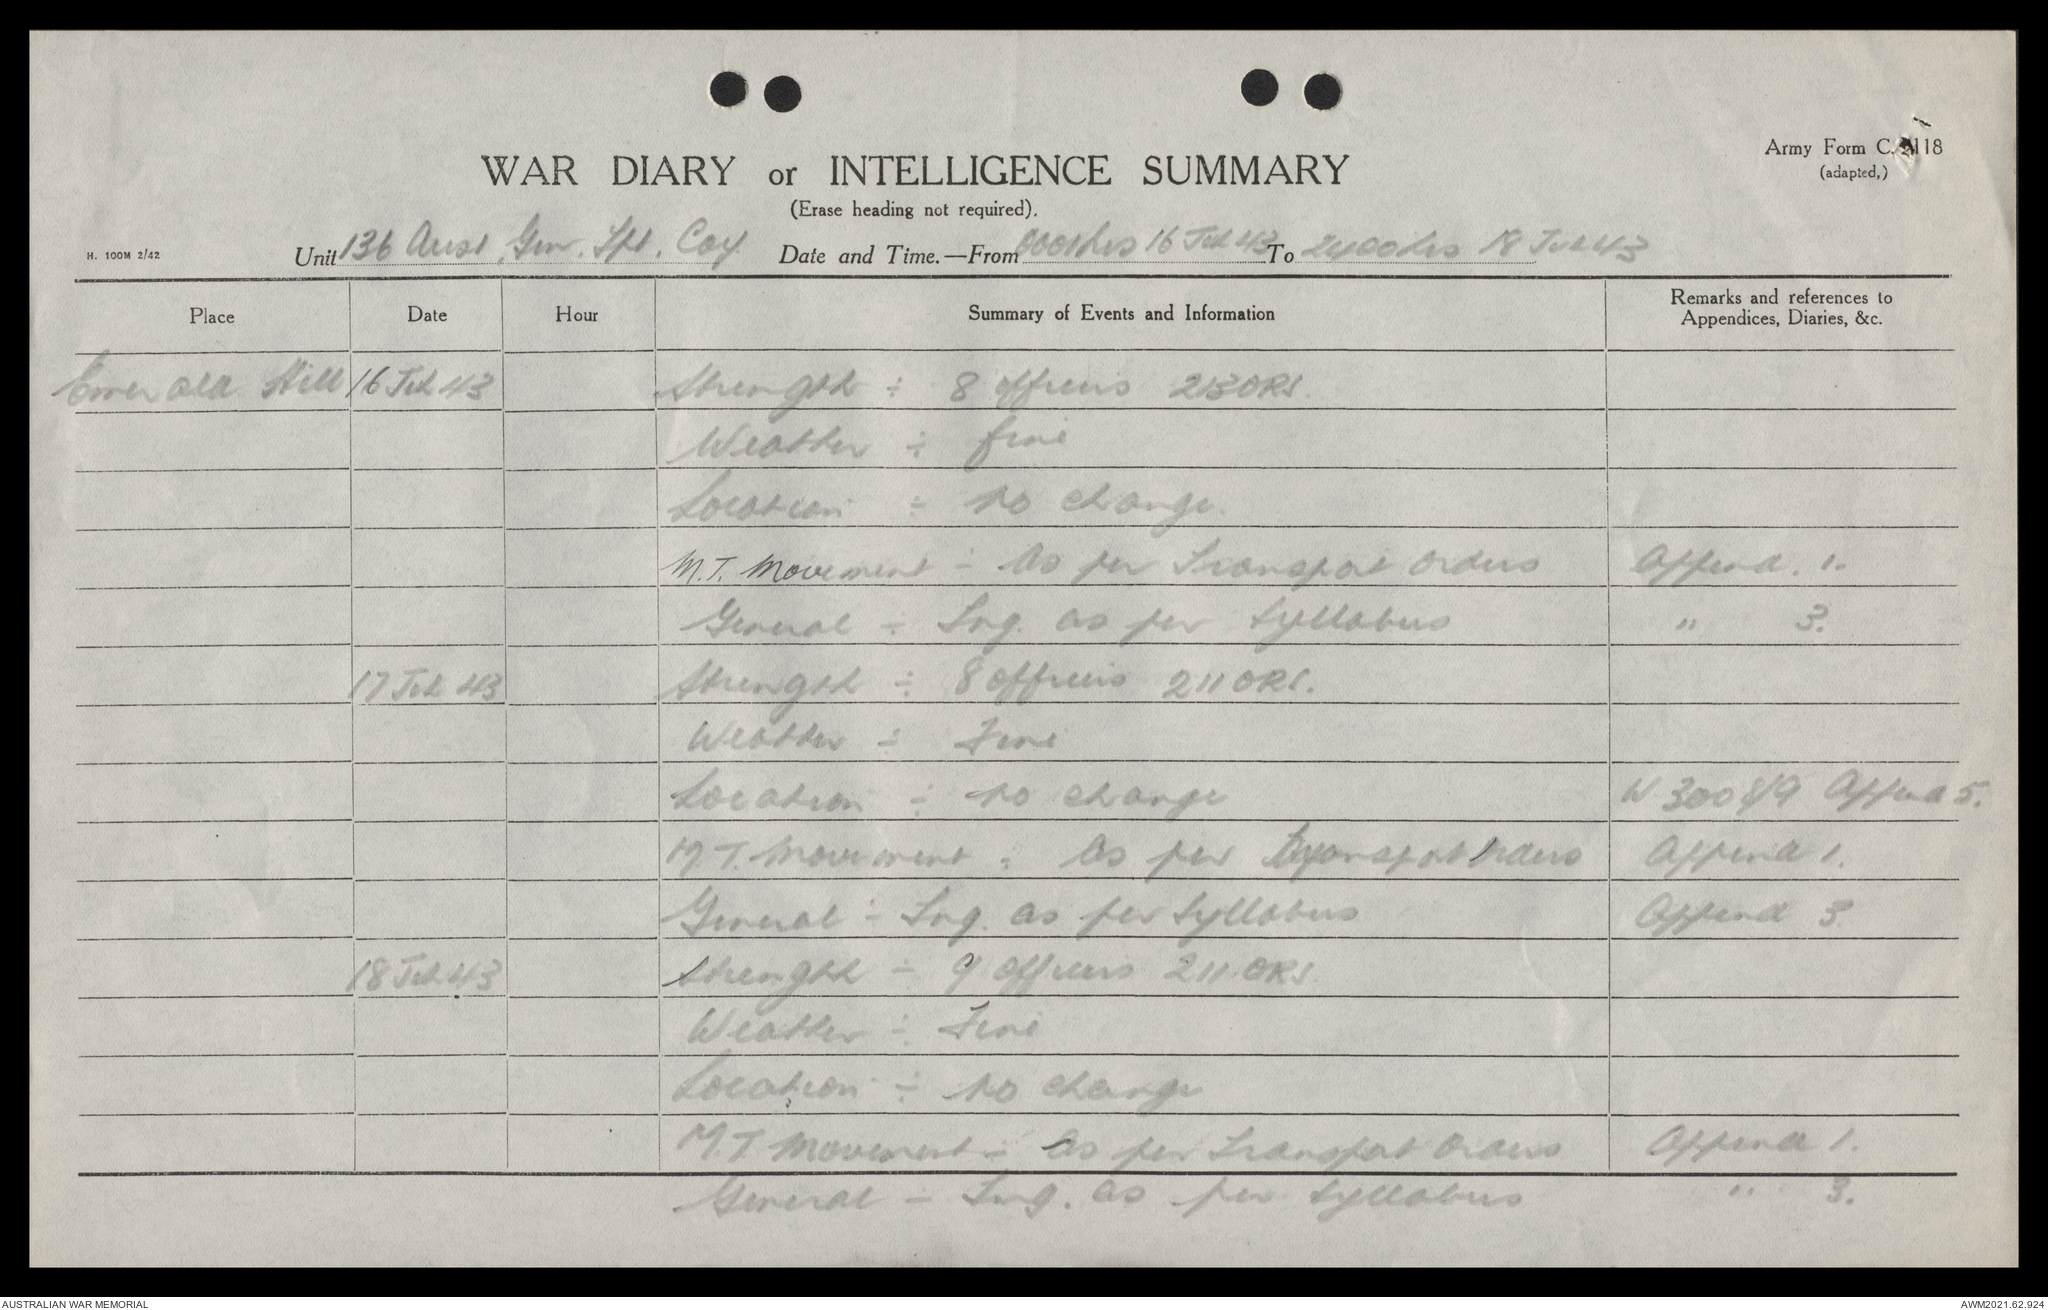 Army Form C. 2118
(adapted,)
WAR DIARY or INTELLIGENCE SUMMARY
(Erase heading not required).
H. 100M 2/42
Unit 136 Aust. Gen. Tpt. Coy. Date and Time.—From 0001hrs 16 Feb 43 To 2400hrs 18 Feb 43
Place Date Hour Summary of Events and Information Remarks and references to Appendices, Diaries, &c.
Emerald Hill 16 Feb 43 Strength ÷ 8 officers 213 ORS.
Weather ÷ fine
Location ÷ No change.
M.T. Movement ÷ As per Transport orders Append. 1.
General ÷ Tng. as per Syllabus " 3.
17 Feb 43 Strength ÷ 8 officers 211 ORS.
Weather ÷ Fine
Location ÷ No change W 30089 Append 5.
M.T. Movement ÷ As per Transport Orders Append 1.
General ÷ Tng. as per Syllabus Append 3
18 Feb 43 Strength ÷ 9 officers 211 ORS
Weather ÷ Fine
Location ÷ No change
M.T. Movement ÷ As per Transport Orders Append 1.
General ÷ Tng. as per Syllabus " 3.
AUSTRALIAN WAR MEMORIAL AWM2021.62.924